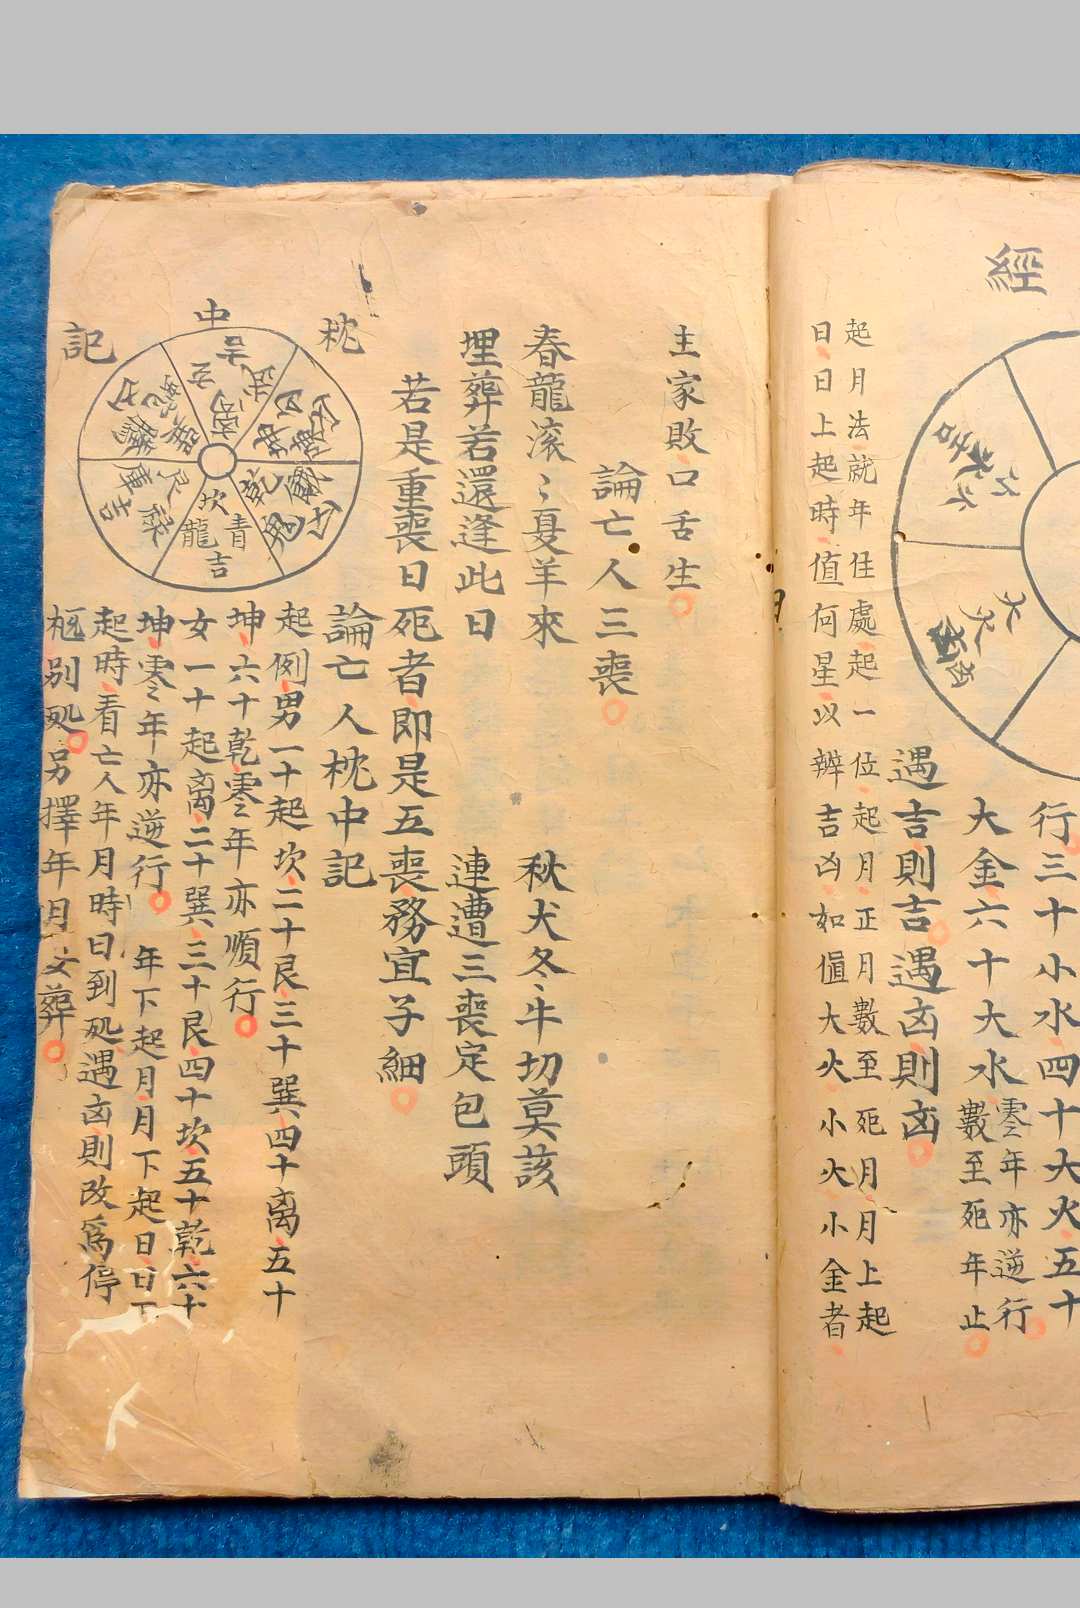 經
行三十小水四十大火五十
大金六十大水零年亦逆行
數至死年止
遇吉則吉遇凶則凶
起月法就年住處起一位起月正月數至死月月上起
日日上起時值何星以辨吉凶如值大火小火小金者
主家敗口舌生
論亡人三喪
春龍滾〻夏羊來 秋犬冬牛切莫該
埋葬若還逢此日 連遭三喪定包頭
若是重喪日死者即是五喪務宜子細
論亡人枕中記
枕中記
坎青龍吉
起例男一十起坎二十艮三十巽四十离五十
坤六十乾零年亦順行
女一十起离二十巽三十艮四十坎五十乾六十
坤零年亦逆行 年下起月月下起日日下
起時看亡人年月時日到処遇凶則改爲停
柩別処另擇年月安葬